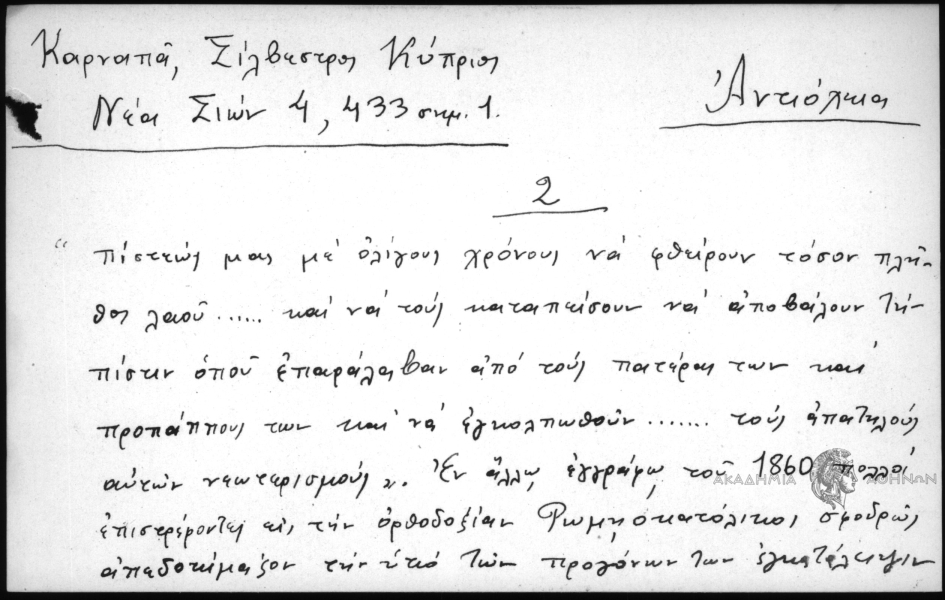 Καρναπᾶ, Σίλβεστρος Κύπριος
Νέα Σιών 4, 433 σημ. 1.
Ἀντιόχεια
2
“ πίστεώς μας μέ ὀλίγους χρόνους νά φθείρουν τόσον πλῆ-
θος λαοῦ ...... καί νά τούς καταπείσουν νά ἀποβάλουν τήν
πίστιν ὁποῦ ἐπαράλαβαν ἀπό τούς πατέρας των καί
προπάππους των καί νά ἐγκολπωθοῦν ....... τούς ἀπατηλούς
αὐτῶν νεωτερισμούς„. Ἐν ἄλλῳ ἐγγράφῳ τοῦ 1860 πολλοί
ΑΚΑΔΗΜΙΑ ΑΘΗΝΩΝ
ἐπιστρέφοντες εἰς τήν ὀρθοδοξίαν Ρωμηοκατόλικοι σφοδρῶς
ἀπεδοκίμαζον τήν ὑπό τῶν προγόνων των ἐγκατάλειψιν